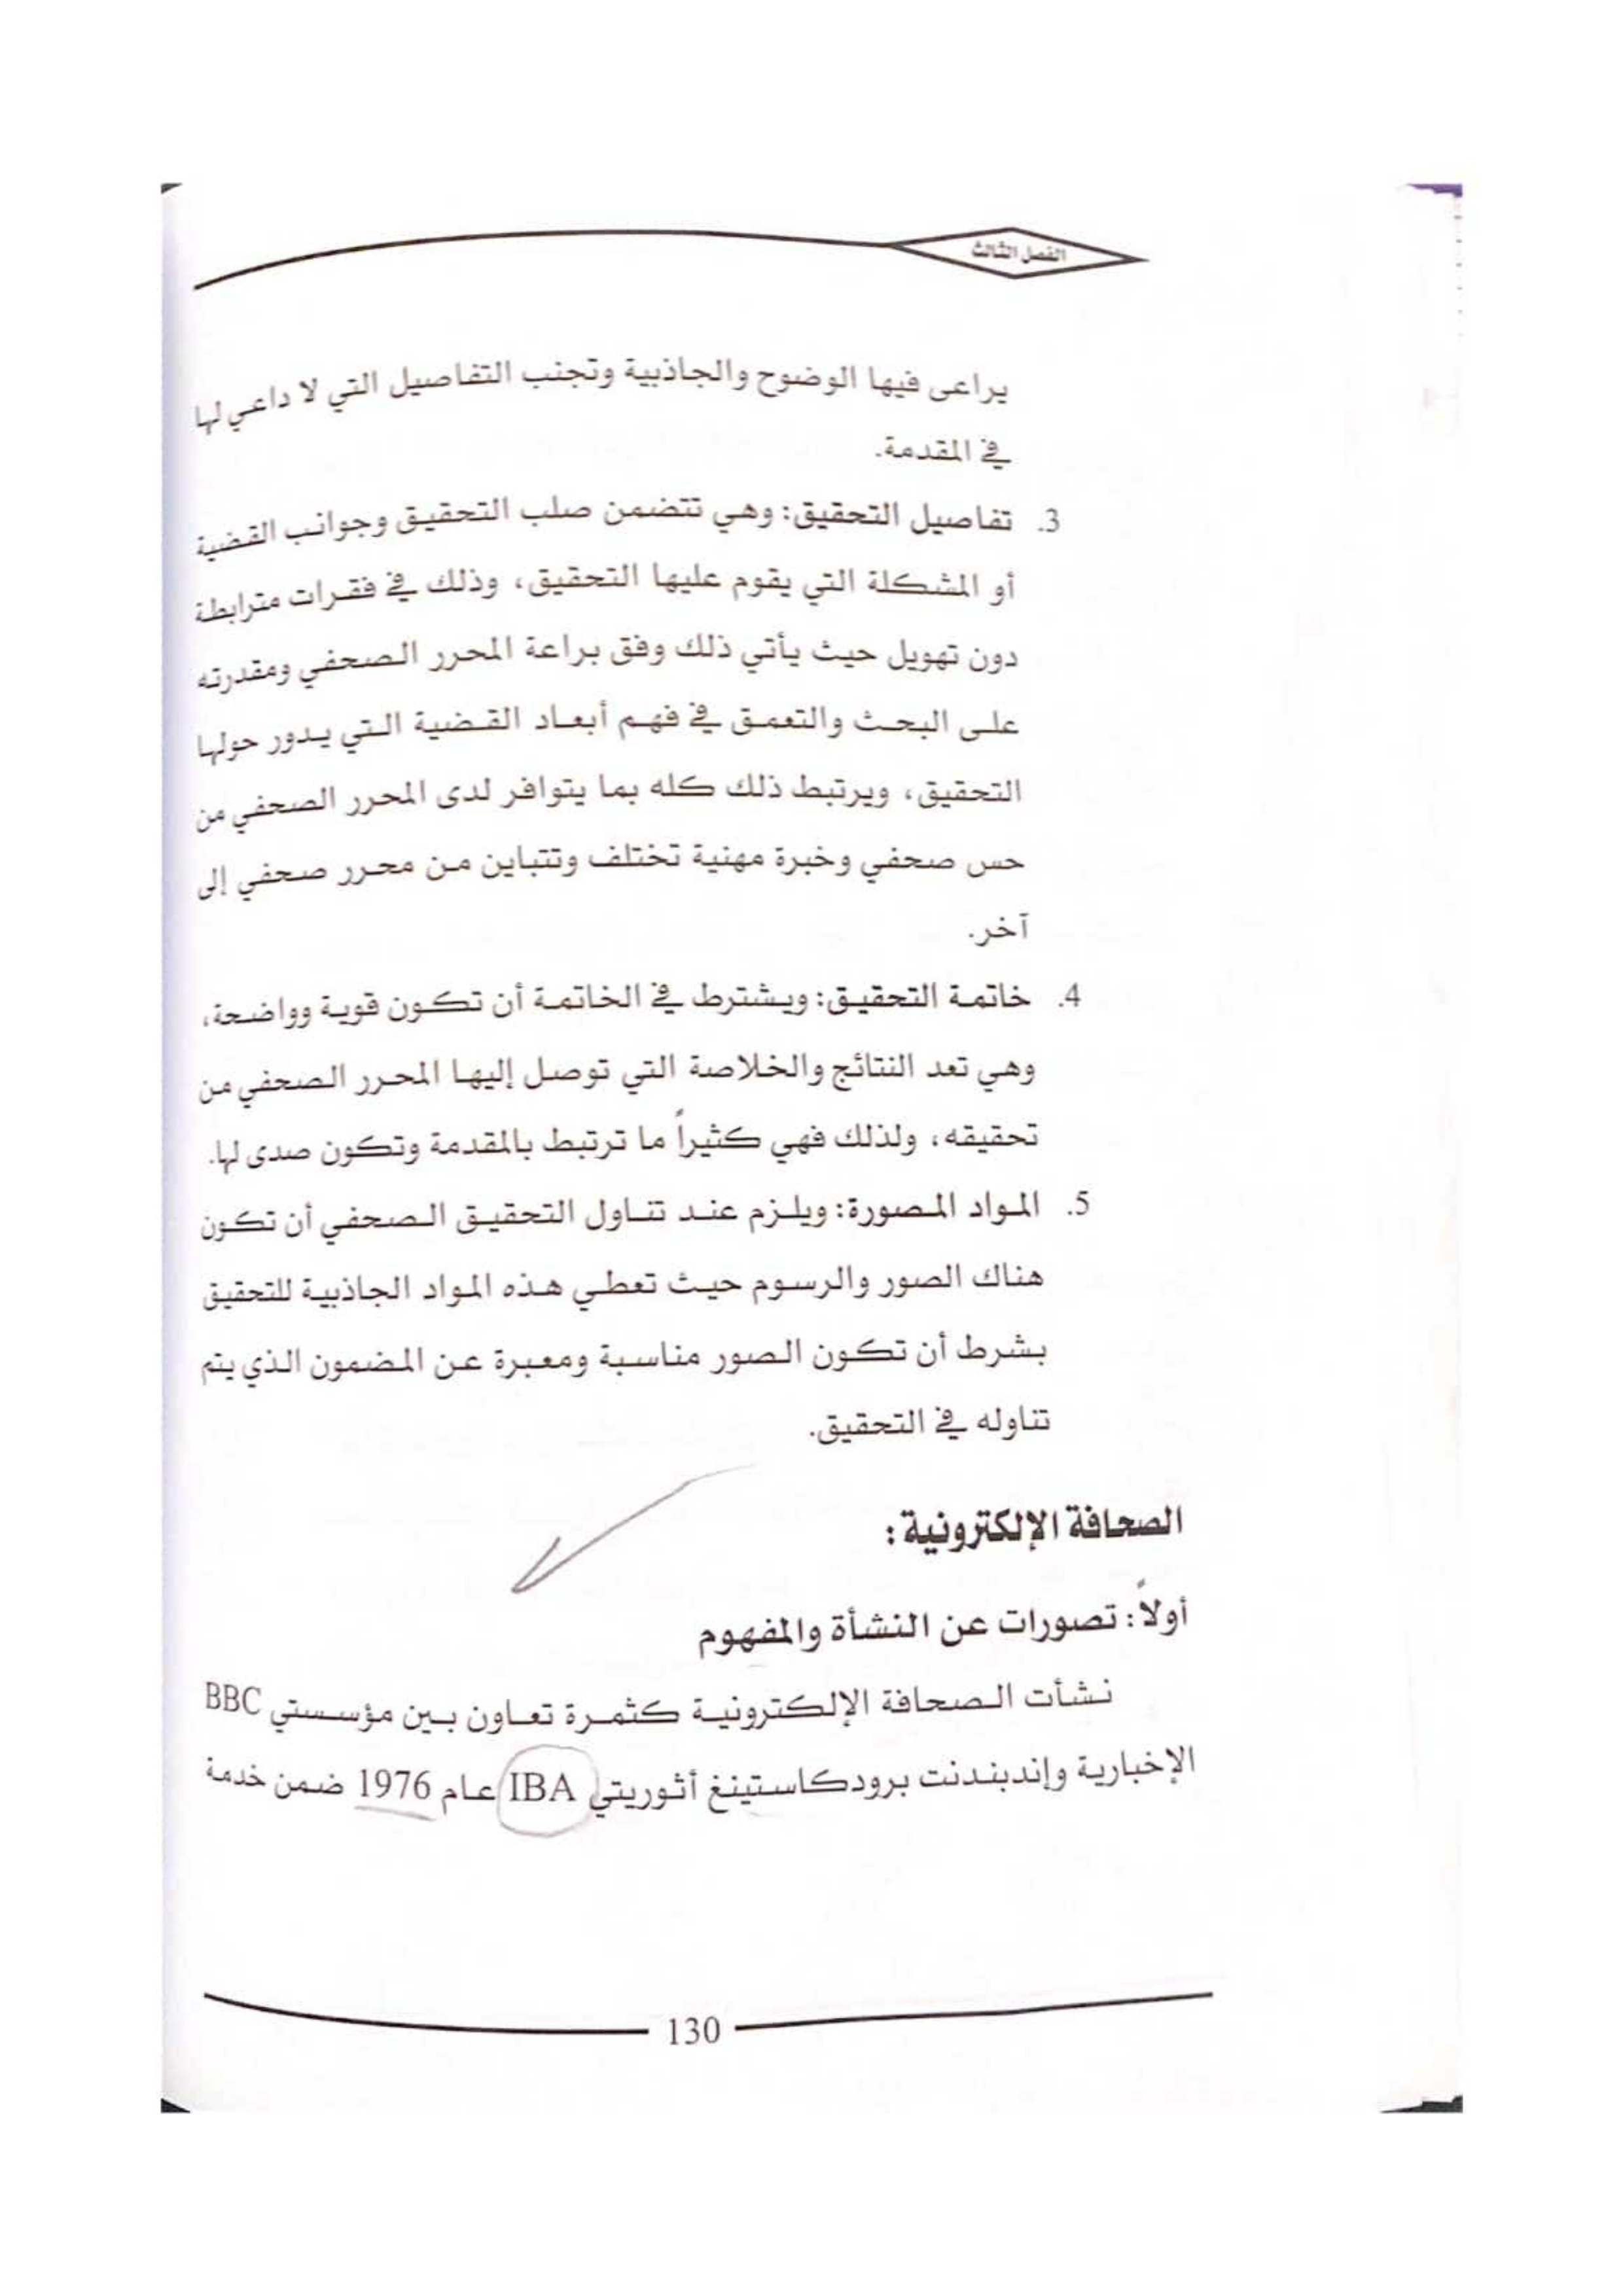 الفصل الثالث
يراعى فيها الوضوح والجاذبية وتجنب التفاصيل التي لا داعي لها
في المقدمة.
3. تفاصيل التحقيق: وهي تتضمن صلب التحقيق وجوانب القضية
أو المشكلة التي يقوم عليها التحقيق، وذلك في فقرات مترابطة
دون تهويل حيث يأتي ذلك وفق براعة المحرر الصحفي ومقدرته
على البحث والتعمق في فهم أبعاد القضية التي يدور حولها
التحقيق، ويرتبط ذلك كله بما يتوافر لدى المحرر الصحفي من
حس صحفي وخبرة مهنية تختلف وتتباين من محرر صحفي إلى
آخر.
4. خاتمة التحقيق: ويشترط في الخاتمة أن تكون قوية وواضحة،
وهي تعد النتائج والخلاصة التي توصل إليها المحرر الصحفي من
تحقيقه، ولذلك فهي كثيراً ما ترتبط بالمقدمة وتكون صدى لها.
5. المواد المصورة: ويلزم عند تناول التحقيق الصحفي أن تكون
هناك الصور والرسوم حيث تعطي هذه المواد الجاذبية للتحقيق
بشرط أن تكون الصور مناسبة ومعبرة عن المضمون الذي يتم
تناوله في التحقيق.
الصحافة الإلكترونية:
أولاً: تصورات عن النشأة والمفهوم
نشأت الصحافة الإلكترونية كثمرة تعاون بين مؤسستي BBC
الإخبارية وإندبندنت برودكاستينغ أثوريتي IBA عام 1976 ضمن خدمة
130